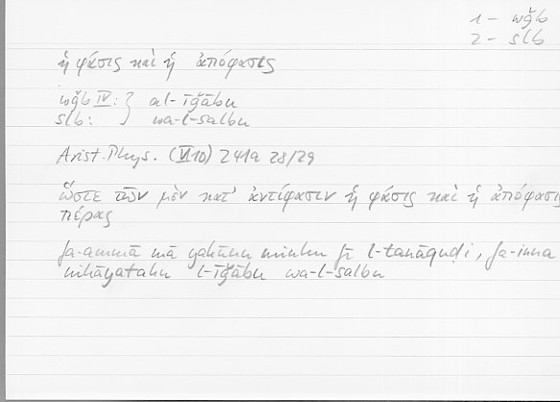 1 – wǧb
2 – slb
ἡ φάσις καὶ ἡ ἀπόφασις
wǧb IV: } al-īǧābu
slb: } wa-l-salbu
Arist. Phys. (VI 10) 241a 28/29
ὥστε τῶν μὲν κατ' ἀντίφασιν ἡ φάσις καὶ ἡ ἀπόφασις
πέρας
fa-ammā mā yakūnu minhu fī l-tanāquḍi, fa-inna
nihāyatahu l-īǧābu wa-l-salbu